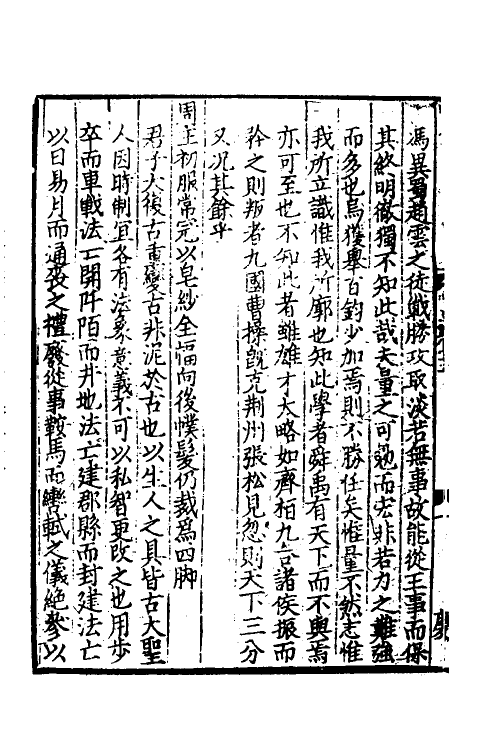 馮異蜀趙雲之徒戰勝攻取淡若無事故能從王事而保
其終明徹獨不知此哉夫量之可勉而宏非若力之難強
而多也烏獲舉百鈞少加焉則不勝任矣惟量不然志惟
我所立識惟我所廓也知此學者舜禹有天下而不與焉
亦可至也不知此者雖雄才大略如齊桓九合諸侯振而
矜之則叛者九國曹操旣克荆州張松見忽則天下三分
又况其餘乎
周主初服常冠以皂紗全幅向後幞髮仍裁爲四脚
君子大復古重變古非泥於古也以生人之具皆古大聖
人因時制宜各有法象意義不可以私智更改之也用步
卒而車戰法亡開阡陌而井地法亡建郡縣而封建法亡
以日易月而通喪之禮廢從事鞍馬而轡軾之儀絶參以